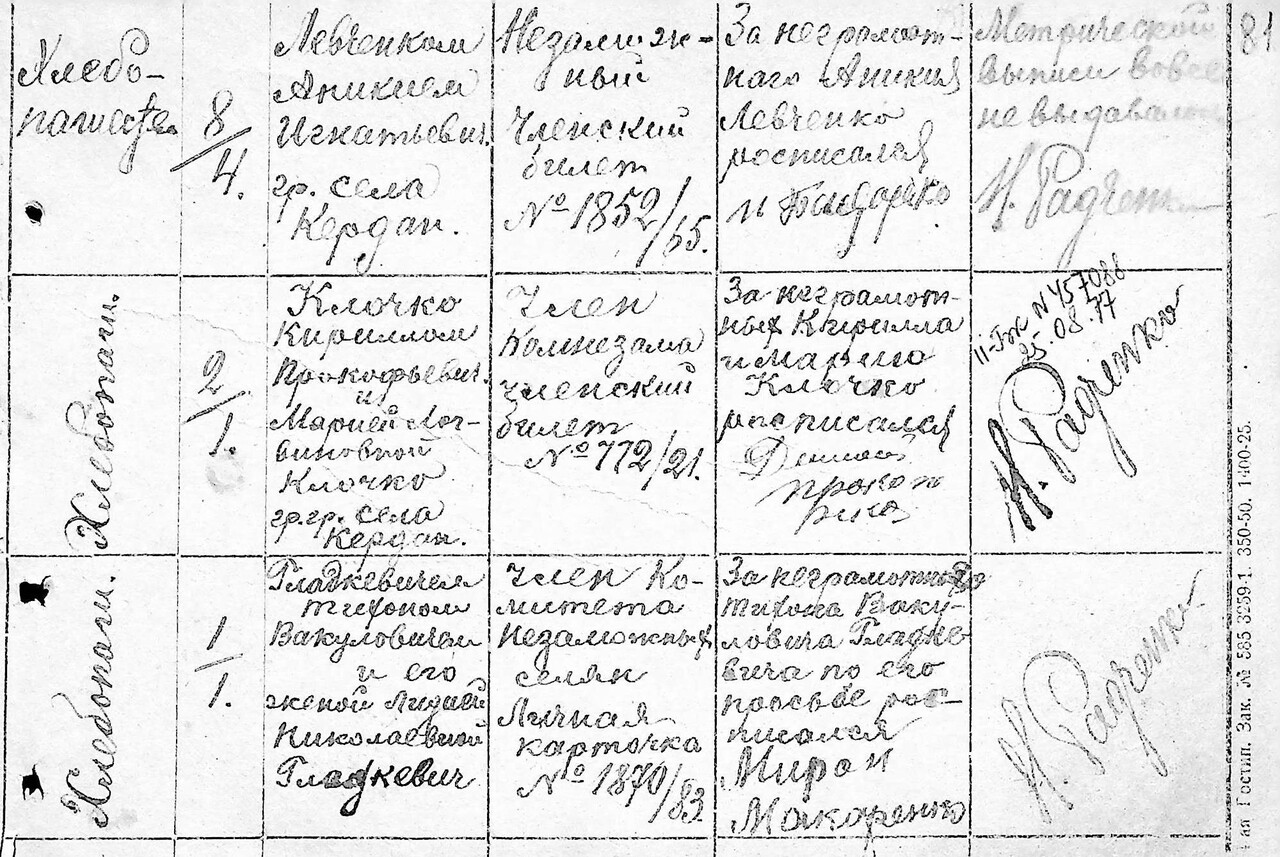 81
Хлебо-
8/4.
Левченком
Аникием
Игнатьевич.
гр. села
Кердан.
Незамож-
ный
Членский
билет
№ 1852/65.
За неграмот-
наго Аникия
Левченко
росписался
и
Метрической
выписи вовсе
не выдавалось
Н. Радченко
Хлебопашц.
2/1.
Клочко
Кириллом
Прокофьевич.
и
Марией Лог-
виновной
Клочко
гр.гр. села
Кердан.
Член
Комнезама
членский
билет
№ 772/21.
За неграмот-
ных Кирилла
и Марию
Клочко
росписался
II-БК № 457086
25.08.77
Н. Радченко
Хлебопаш.
1/1.
Гладкевичем
Тихоном
Вакуловичем
и его
женой Лидией
Николаевной
Гладкевич
Член Ко-
митета
Незаможных
селян
Личная
карточка
№ 1870/83
За неграмотного
Тихона Ваку-
ловича Гладке
вича по его
просьбе рос-
писался
Мирон
Макаренко
Н. Радченко
Гостип. Зак. № 585 3239-1. 350-50. 1400-25.